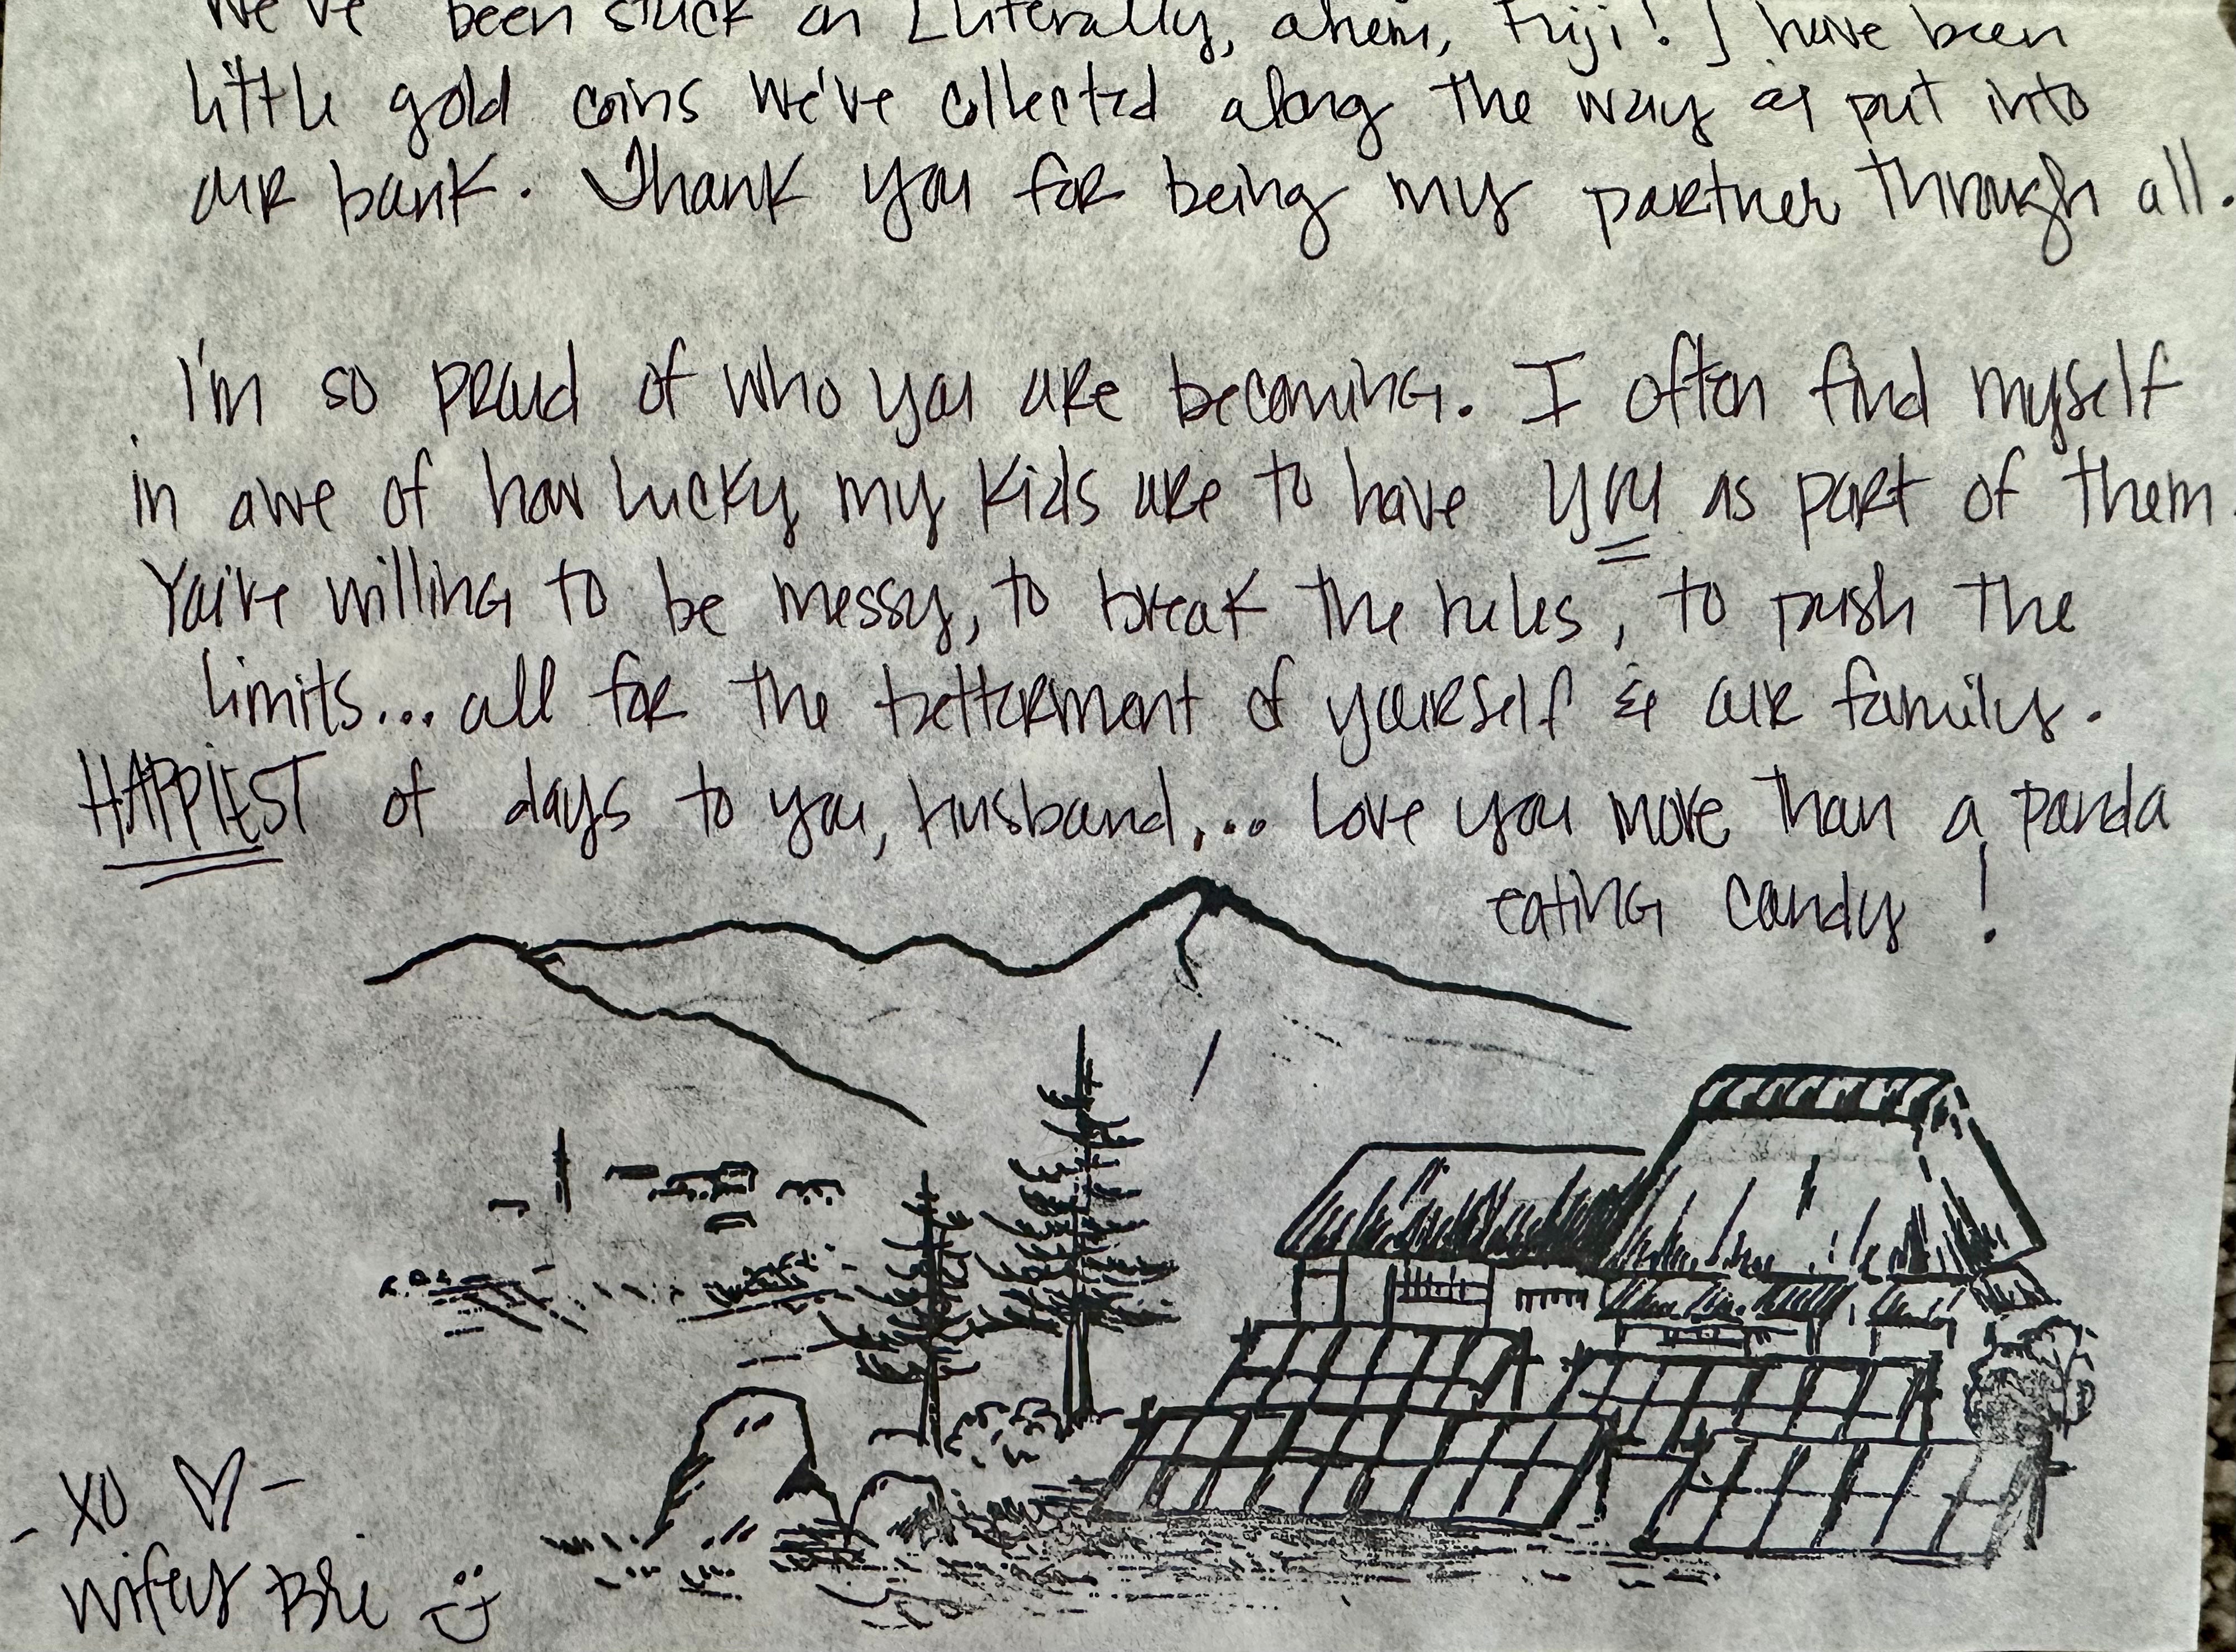 We've been stuck on [literally, ahem, Fuji!] have been
little gold coins we've collected along the way & put into
our bank. Thank you for being my partner through all.
I'm so proud of who you are becoming. I often find myself
in awe of how lucky my kids are to have you as part of them.
You're willing to be messy, to break the rules, to push the
limits... all for the betterment of yourself & our family.
HAPPIEST of days to you, husband,... Love you more than a panda
eating candy!
- XO ♡ -
Wifey Bri :)